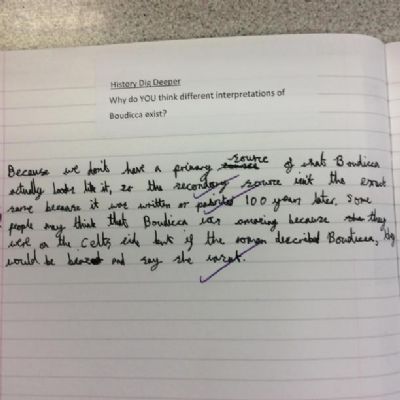 History Dig Deeper
Why do YOU think different interpretations of
Boudicca exist?
Because we don't have a primary source of what Boudicca
actually looks like it, so the secondary source isn't the exact
same because it was written or painted 100 years later. Some
people may think that Boudicca was amazing because they
were on the Celts side but if the roman described Boudicca, they
would be and say she wasn't.